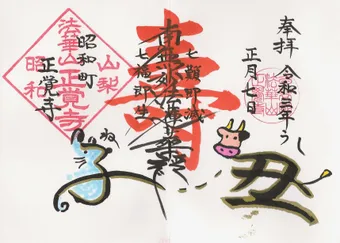 奉拝
令和三年うし
正月七日
丑
壽
南無妙法蓮華経
七難即滅
七福即生
ね
子
昭和町
正覚寺
山梨
法華山正覚寺
昭和